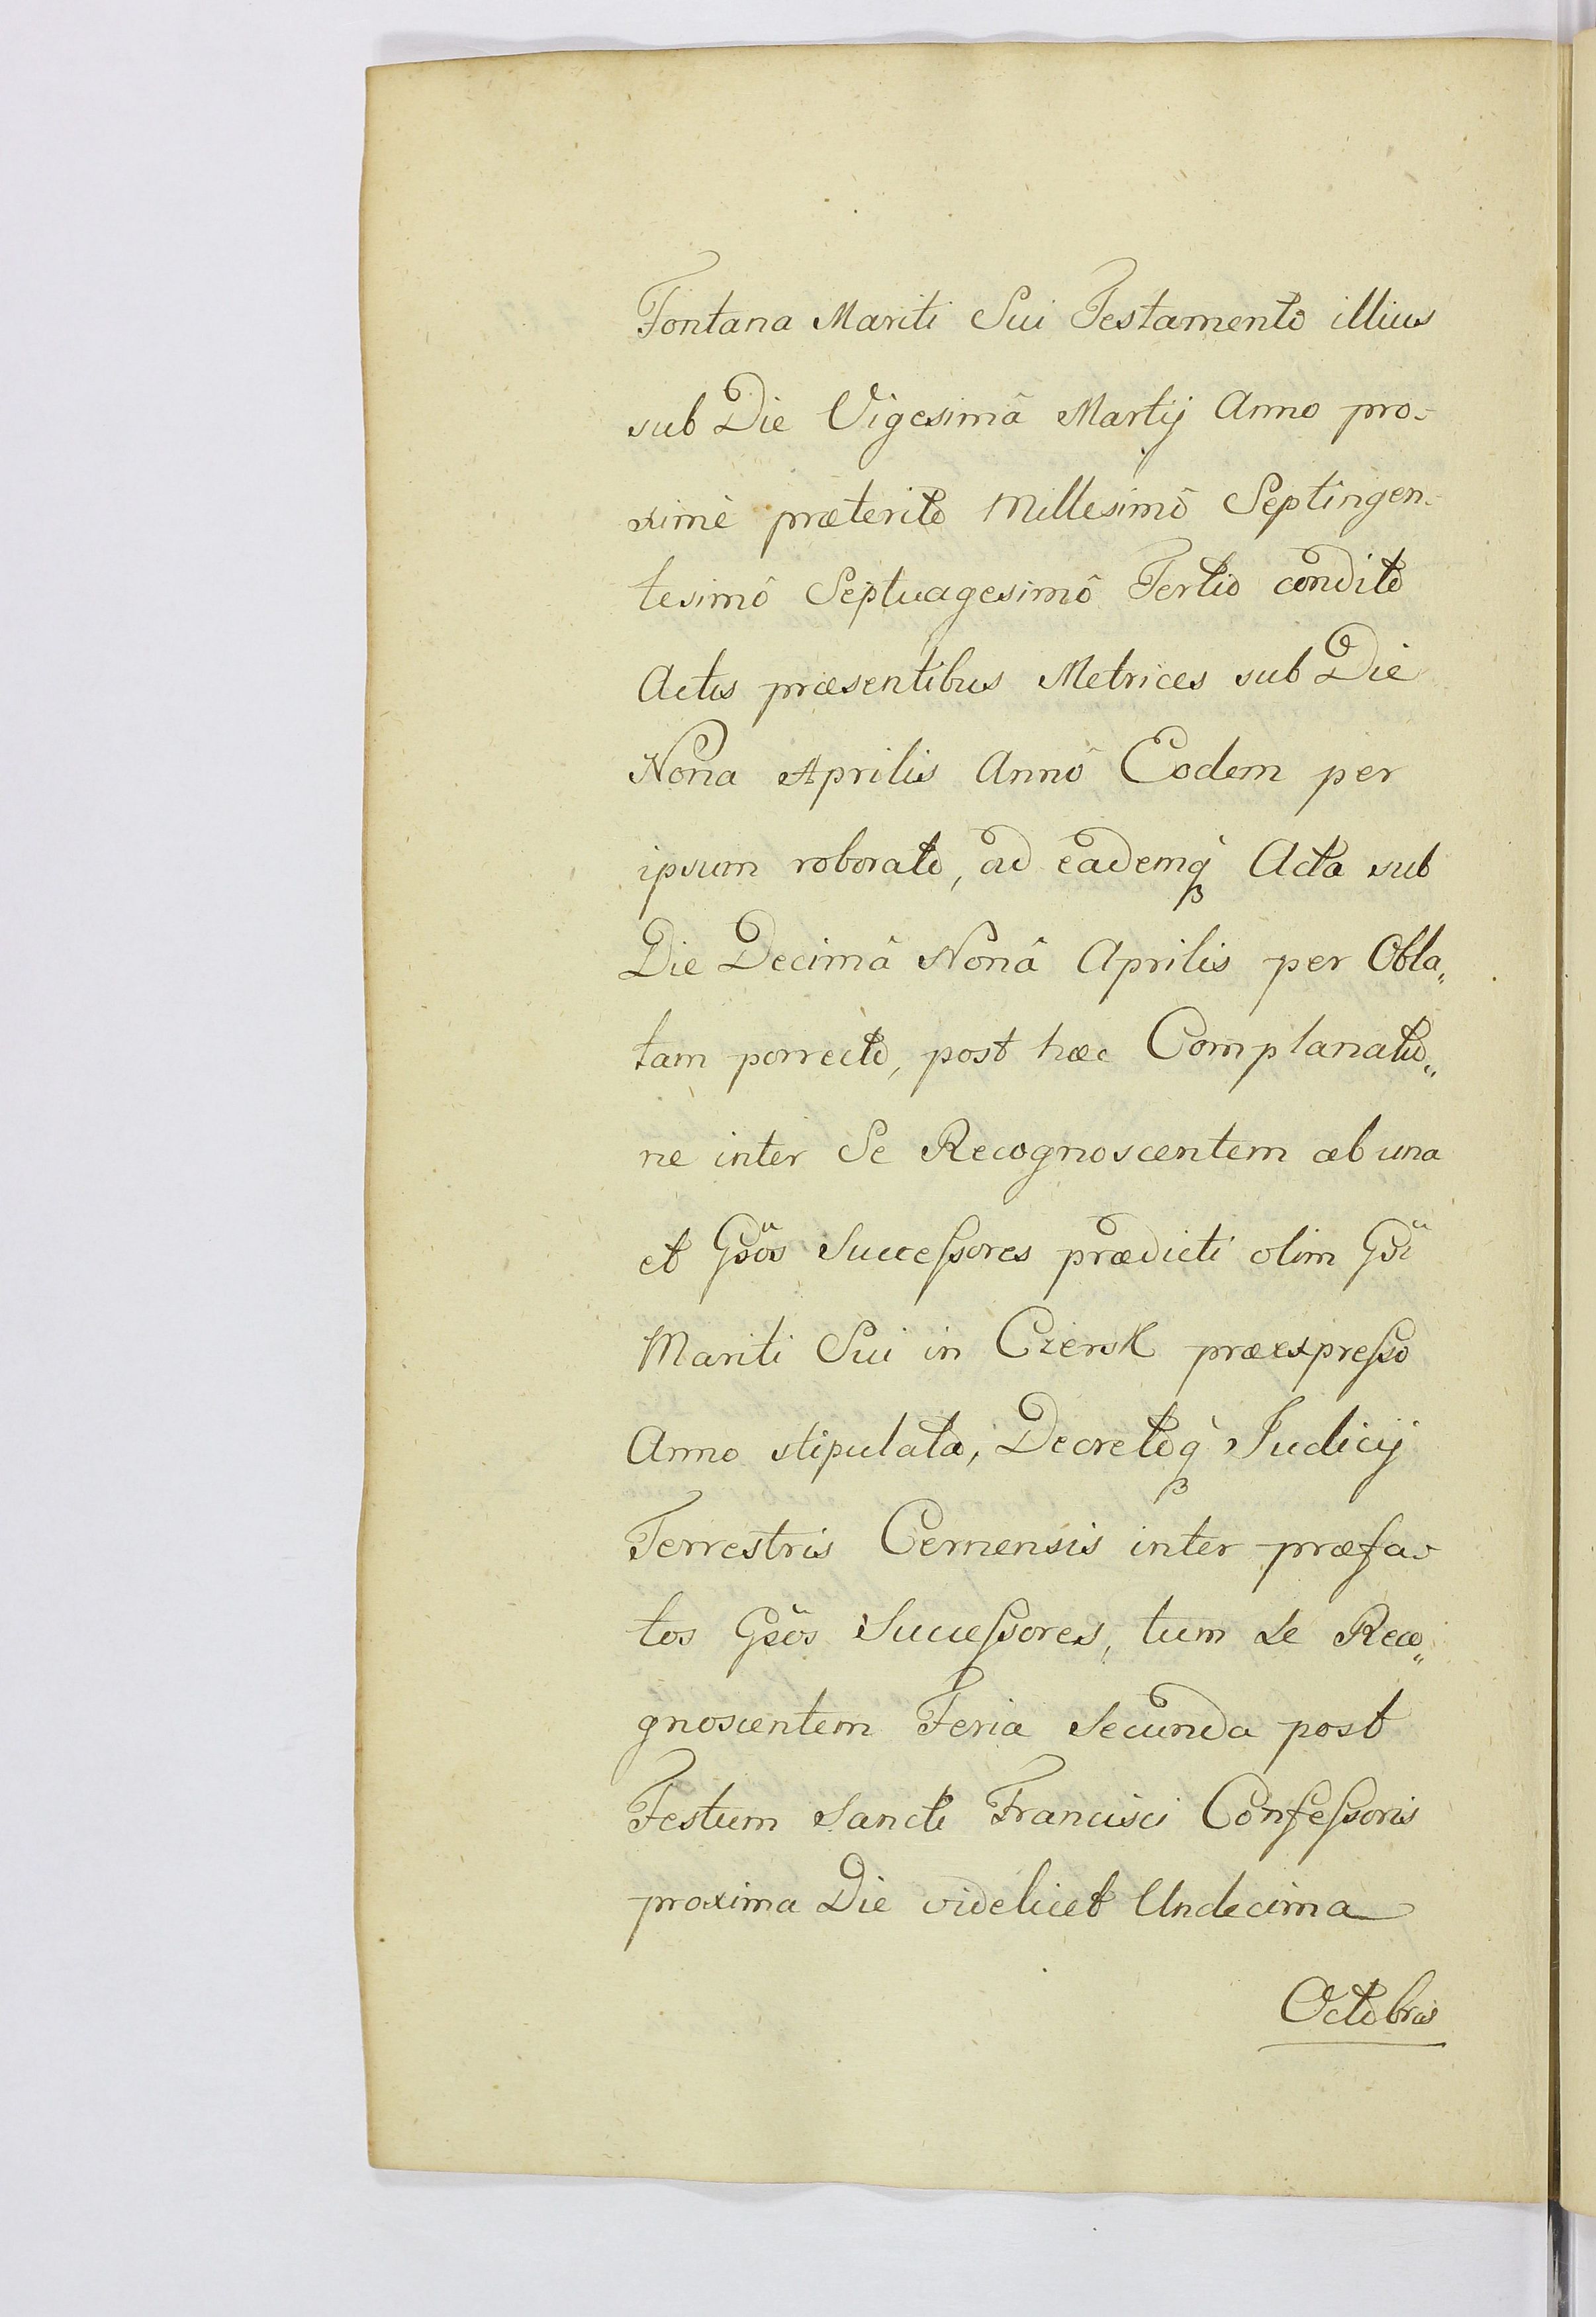 Fontana Mariti Sui Testamento illius
sub Die Vigesimâ Martij Anno pro-
ximè præterito Millesimô Septingen-
tesimô Septuagesimô Tertio condito
Actis præsentibus Metrices sub Die
Nona Aprilis Annô Eodem per
ipsum roborato, ad eademq̀₃ Acta sub
Die Decimâ Nonâ Aprilis per Obla„
tam porrecto, post hæc Complanatio„
ne inter Se Recognoscentem ab una
et Gsõs Succeſsores prædicti olim Gsĩ
Mariti Sui in Czersk præexpreſso
Anno stipulata, Decretoq̀₃ Judicij
Terrestris Cernensis inter præfa-
tos Gsõs Succeſsores, tum Se Reco„
gnoscentem Feria Secunda post
Festum Sancti Francisci Confeſsoris
proxima Die videlicet Undecima
Octobris